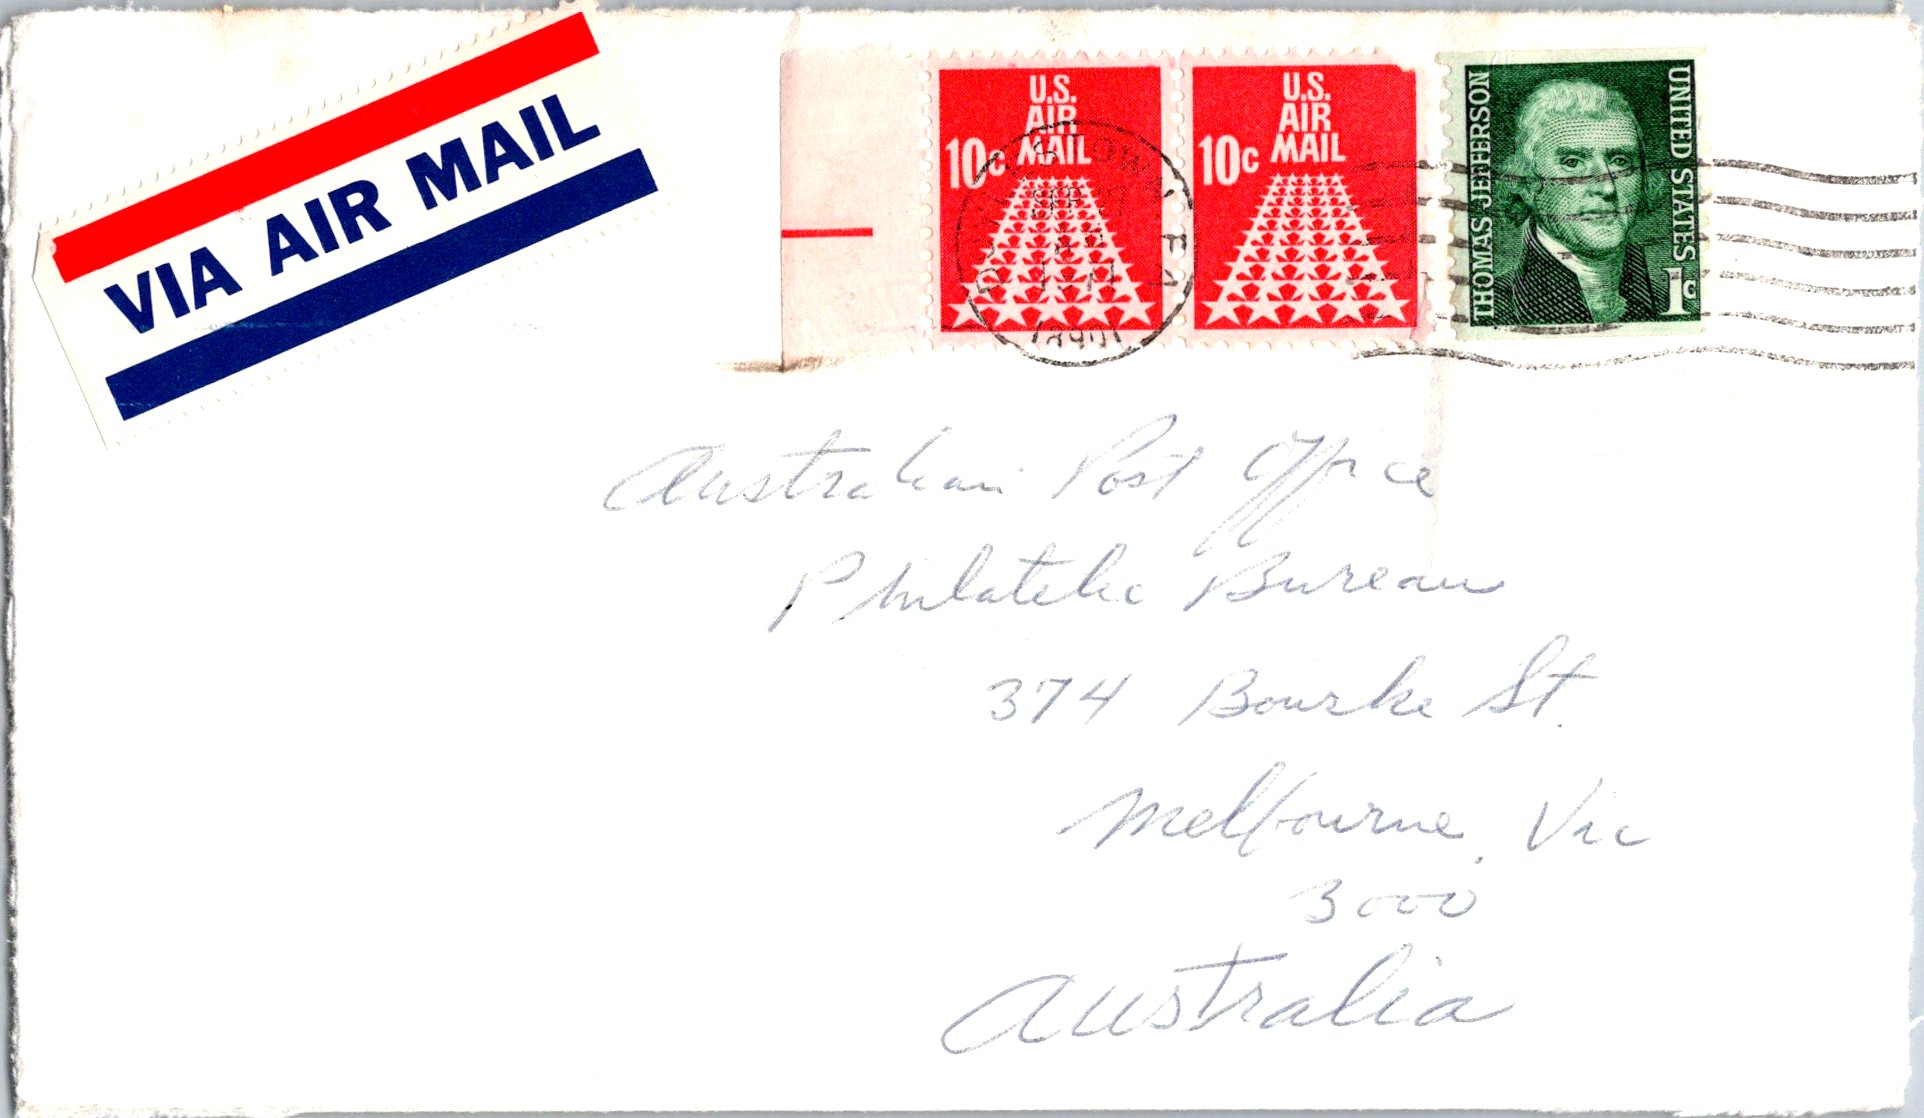 VIA AIR MAIL
U.S.
AIR
MAIL
10c
U.S.
AIR
MAIL
10c
THOMAS JEFFERSON
UNITED STATES
1c
PA
18901
Australian Post Office
Philatelic Bureau
374 Bourke St.
Melbourne, Vic
3000
Australia